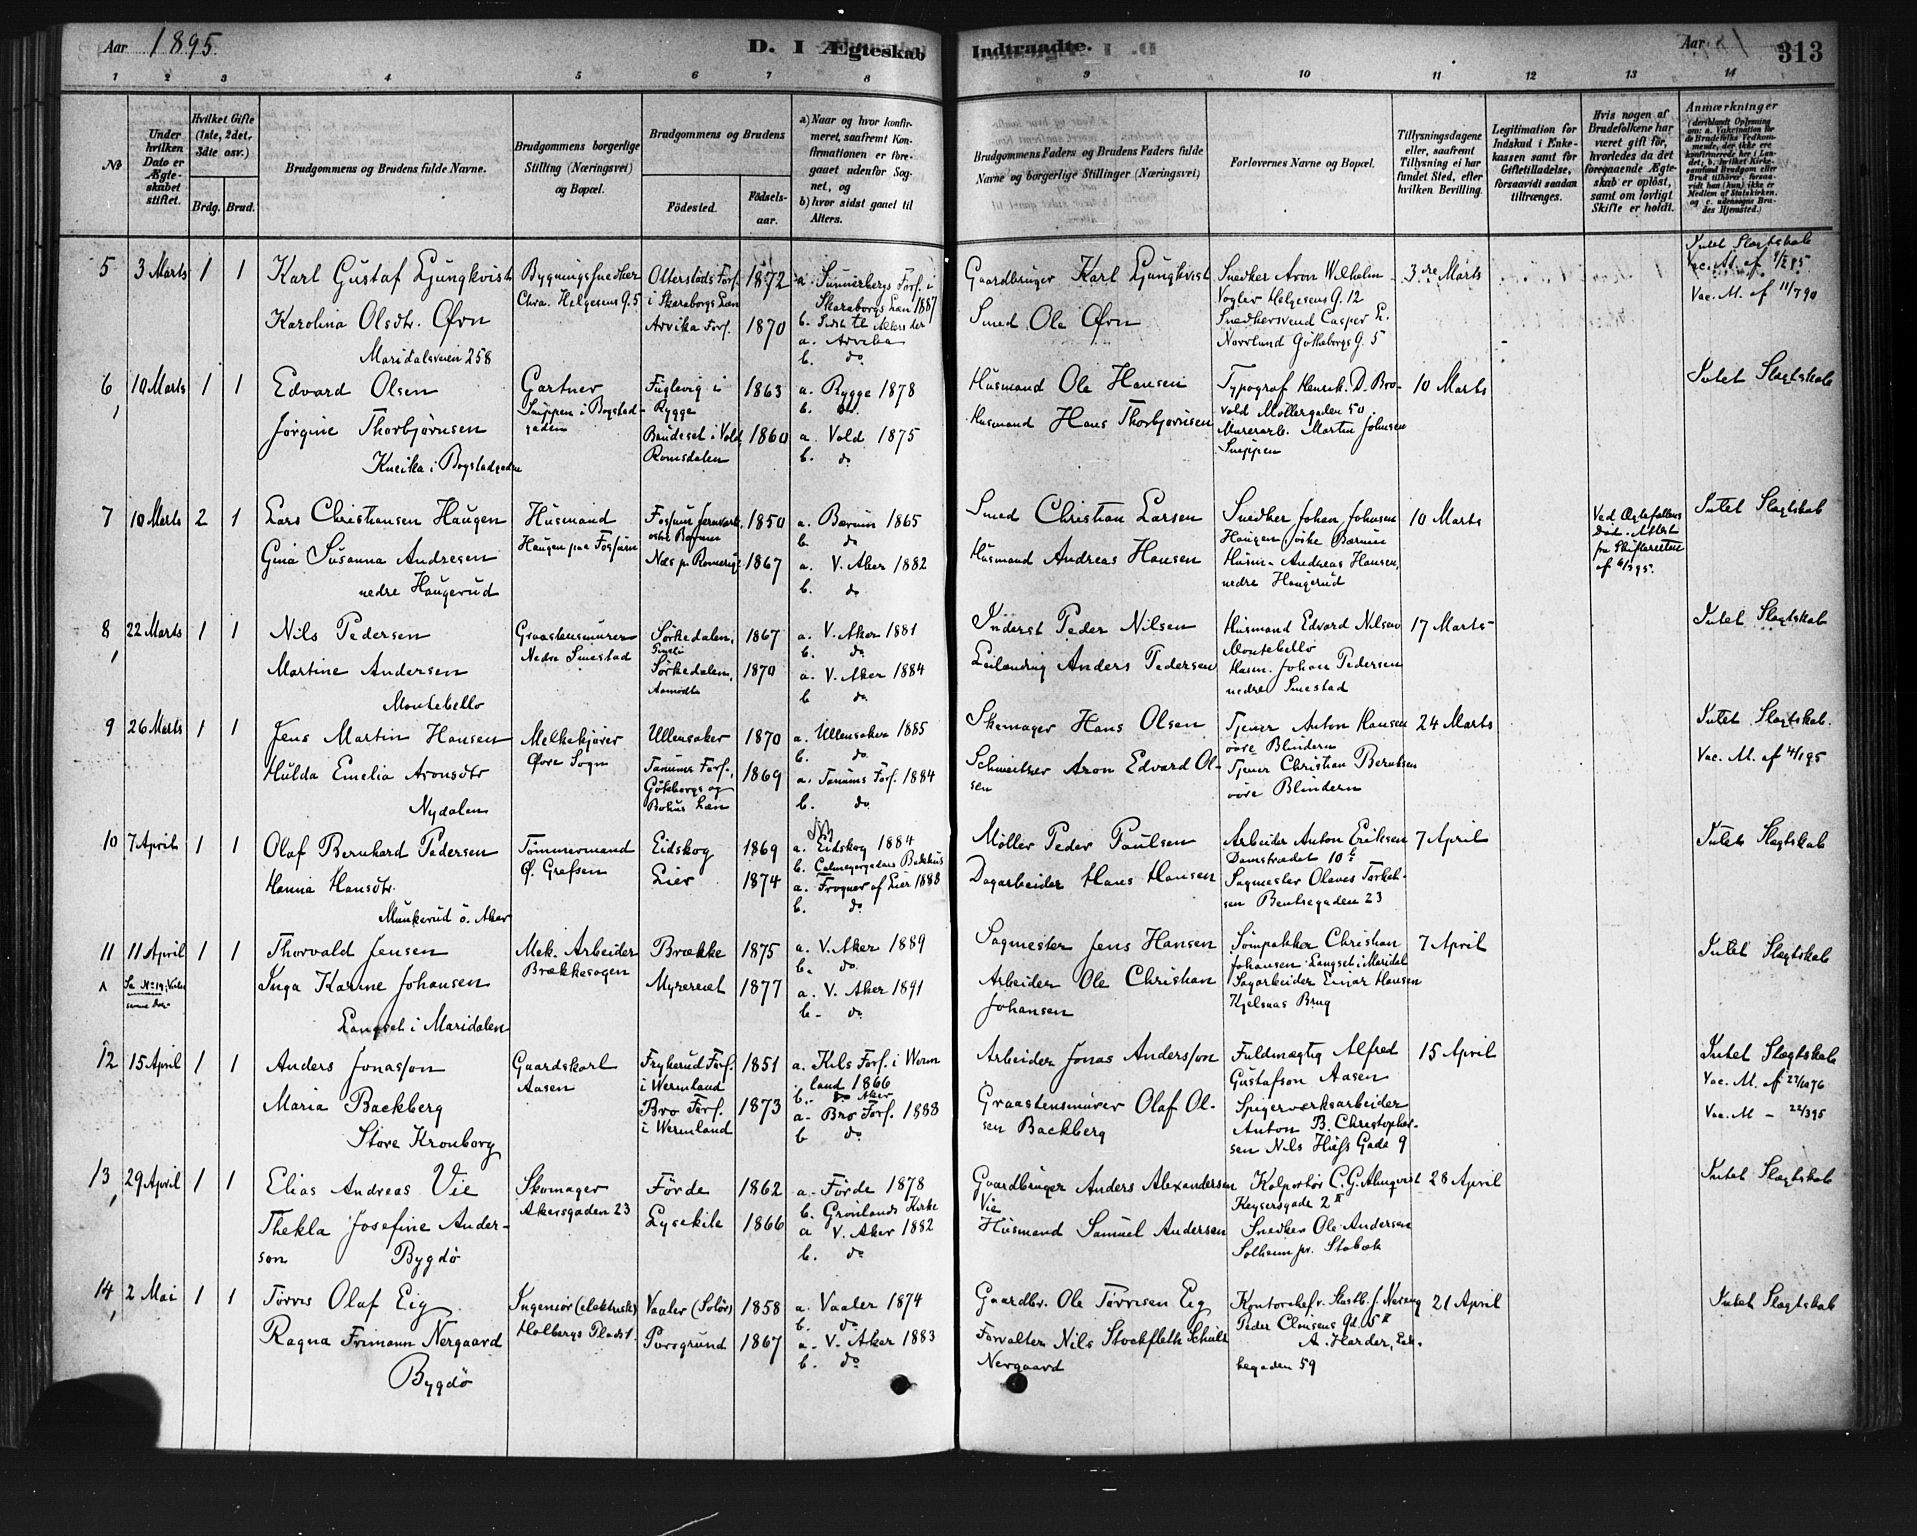 Aar 1895.
D. I Ægteskab Indtraadte.
Aar 313
1 2 3 4 5 6 7 8 9 10 11 12 13 14
No
Under hvilken Dato er Ægteskabet stiftet.
Hvilket Gifte (1ste, 2det, 3die osv.)
Brdg. Brud.
Brudgommens og Brudens fulde Navne.
Brudgommens borgerlige Stilling (Næringsvei) og Bopæl.
Brudgommens og Brudens
Fødested.
Fødselsaar.
a) Naar og hvor konfirmeret, saafremt Konfirmationen er foregaaet udenfor Sognet, og
b) hvor sidst gaaet til Alters.
Brudgommens Faders og Brudens Faders fulde Navne og borgerlige Stillinger (Næringsvei)
Forlovernes Navne og Bopæl.
Tillysningsdagene eller, saafremt Tillysning ei har fundet Sted, efter hvilken Bevilling.
Legitimation for Indskud i Enkekassen samt for Giftetilladelse, forsaavidt saadan tiltrænges.
Hvis nogen af Brudefolkene har været gift før, hvorledes da det foregaaende Ægteskab er opløst, samt om lovligt Skifte er holdt.
Anmærkninger
5 3 Marts 1 1
Karl Gustaf Ljungkvist
Karolina Olsdtr. Øvn
Maridalsveien 258
Bygningssnedker
Chra. Helgesens G. 5
Otterstads Fors.
i Skaraborgs Læn
Arvika Fors.
1872
1870
a. Sunnerbergs Fors. i
Skaraborgs Læn 1887
b. Sidst til Alters der
a. Arvika
b. do
Gaardbruger Karl Ljungkvist
Smed Ole Øvn
Snedker Aron Wilhelm
Vogler Helgesens G. 12
Snedkersvend Casper E.
Norrlund Götheborgs G. 5
3dre Marts
Intet Slagtskab
Vac. M. af 11/7 90
6 10 Marts 1 1
Edvard Olsen
Jørgine Thorbjørnsen
Kneika i Bogstadgaden
Gartner
Snippen i Bogstadgaden
Fuglevig i
Rygge
Brudeset i Vold
Romsdalen
1863
1860
a. Rygge 1878
b. do.
a. Vold 1875
b. do
Husmand Ole Hansen
Husmand Hans Thorbjørnsen
Typograf Henrik. D. Brovold Møllergaden 50.
Murerarb. Martin Johnsen
Snippen
10 Marts
Intet Slagtskab
7 10 Marts 2 1
Lars Christiansen Haugen
Gina Susanna Andresen
nedre Haugerud
Husmand
Haugen paa Fossum
Fossum Jernværk,
østre Bærum
Næs p. Romerige
1850
1867
a. Bærum 1865
b. do
a. V. Aker 1882
b. do
Smed Christian Larsen
Husmand Andreas Hansen
Snedker Johan Johnsen
Haugen, østre Bærum
Husm. Andreas Hansen,
nedre Haugerud
10 Marts
Ved Ægtefællens
Død. Attest
fra Skifteretten
af 6/3 95.
Intet Slagtskab
8 22 Marts 1 1
Nils Pedersen
Martine Andersen
Montebello
Graastensmurer
Nedre Smestad
Sørkedalen,
Sørkedalen,
Aamodt
1867
1870
a. V. Aker 1881
b. do
a. V. Aker 1884
b. do
Inderst Peder Nilsen
Leilænding Anders Pedersen
Husmand Edvard Nilsen
Montebello
Husm. Johan Pedersen
nedre Smestad
17 Marts
Intet Slagtskab
9 26 Marts 1 1
Jens Martin Hansen
Hulda Emelia Aronsdtr
Nydalen
Melkekjører
Øvre Sogn
Ullensaker
Tanums Fors.,
Göteborgs og
Bohus Læn
1870
1869
a. Ullensaker 1885
b. do
a. Tanums Fors. 1884
b. do
Skomager Hans Olsen
Schmeitser Aron Edvard Olsen
Tjener Anton Hansen
øvre Blindern
Tjener Christian Berntsen
øvre Blindern
24 Marts
Intet Slagtskab.
Vac. M. af 4/1 95
10 7 April 1 1
Olaf Bernhard Pedersen
Hanna Hansdtr.
Munkerud ö. Aker
Tømmermand
Ø. Grefsen
Eidskog
Lier
1869
1874
a. Eidskog 1884
b. Calmeyergadens Bedehus
a. Frogner af Lier 1888
b. do
Møller Peder Paulsen
Dagarbeider Hans Hansen
Arbeider Anton Eriksen
Damstrædet 10 b
Sagmester Olaves Torkelsen Bentsegaden 23
7 April
Intet Slagtskab
11 11 April 1 1
Thorvald Jensen
Inga Karine Johansen
Langset i Maridalen
Mek. Arbeider
Brækkesagen
Brække
Myrereiet
1875
1877
a. V. Aker 1889
b. do
a. V. Aker 1891
b. do
Sagmester Jens Hansen
Arbeider Ole Christian
Johansen
Sömpakker Christian
Johansen Langset i Maridal.
Sagarbeider Einar Hansen
Kjelsaas Brug
7 April
Intet Slagtskab
12 15 April 1 1
Anders Jonasson
Maria Backberg
Store Kronborg
Gaardskarl
Aasen
Frykerud Fors.
i Wermland
Bro Fors.
i Wermland
1851
1873
a. Kils Fors. i Wermland 1866
b. Ø Aker
a. Bro Fors. 1888
b do
Arbeider Jonas Andersson
Graastensmurer Olaf Olsen Backberg
Fuldmægtig Alfred
Gustafson Aasen
Spigerværksarbeider
Anton B. Christophersen Nils Huss Gade 9
15 April
Intet Slagtskab
Vac. M. af 22/10 76
Vac. M - 22/3 95
13 29 April 1 1
Elias Andreas Vie
Thekla Josefine Anderson Bygdø
Skomager
Akersgaden 23
Førde
Lysekile
1862
1866
a. Førde 1878
b. Grønlands Kirke
a V. Aker 1882
b. do
Gaardbruger Anders Alexandersen
Vie
Husmand Samuel Andersen
Kolportør C. G. Almqvist
Keysersgade 2 II
Snedker Ole Andersen
Solheim pr. Stabæk
28 April
Intet Slagtskab
14 2 Mai 1 1
Tørris Olaf Eig
Ragna Frimann Nergaard
Bygdø
Ingeniør (elektrisk)
Holbergs Plads 1.
Vaaler (Solør)
Porsgrund
1858
1867
a. Vaaler 1874
b. do
a. V. Aker 1883
b. do
Gaardbr. Ole Tørrisen Eig
Forvalter Nils Stockfleth Schultz
Nergaard
Peder Clausens Gd. 5 II
A. Harder,
21 April
Intet Slagtskab